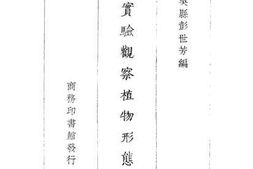 縣彭世芳編
實驗觀察植物形態
商務印書館發行